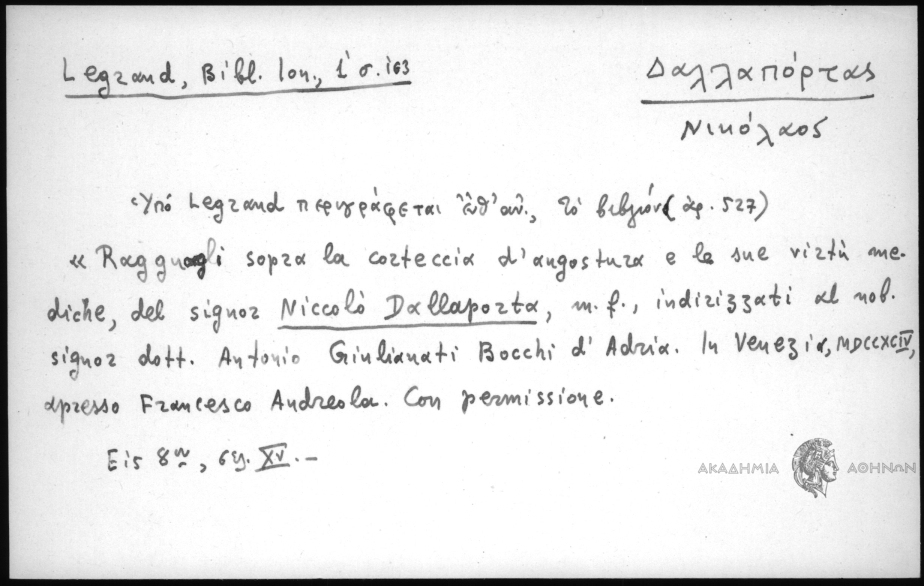 Legrand, Bibl. Ion., 1 σ. 163
Δαλλαπόρτας
Νικόλαος
Ὑπό Legrand περιγράφεται ἐνθ' ἀν., τό βιβλίον (ἀρ. 527)
« Ragguagli sopra la corteccia d'angostura e le sue virtù me-
diche, del signor Niccolò Dallaporta, m.f., indirizzati al nob.
signor dott. Antonio Giulianati Bocchi d'Adria. In Venezia, MDCCXCIV,
apresso Francesco Andreola. Con permissione.
Εἰς 8ον, σελ. XV. –
ΑΚΑΔΗΜΙΑ ΑΘΗΝΩΝ